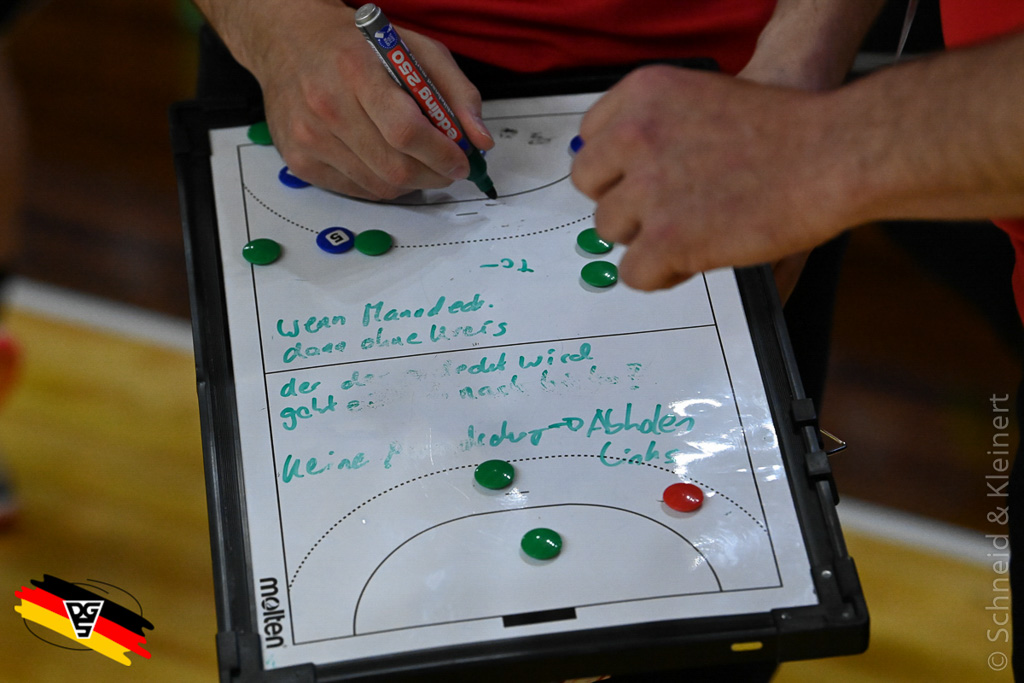 edding 250
5
Tc-
Wenn Manndeck.
dann ohne Kreis
der der gedeckt wird
geht nach hinten?
Keine Manndeckung → Abholen
Links
molten
DGS
© Schneid & Kleinert